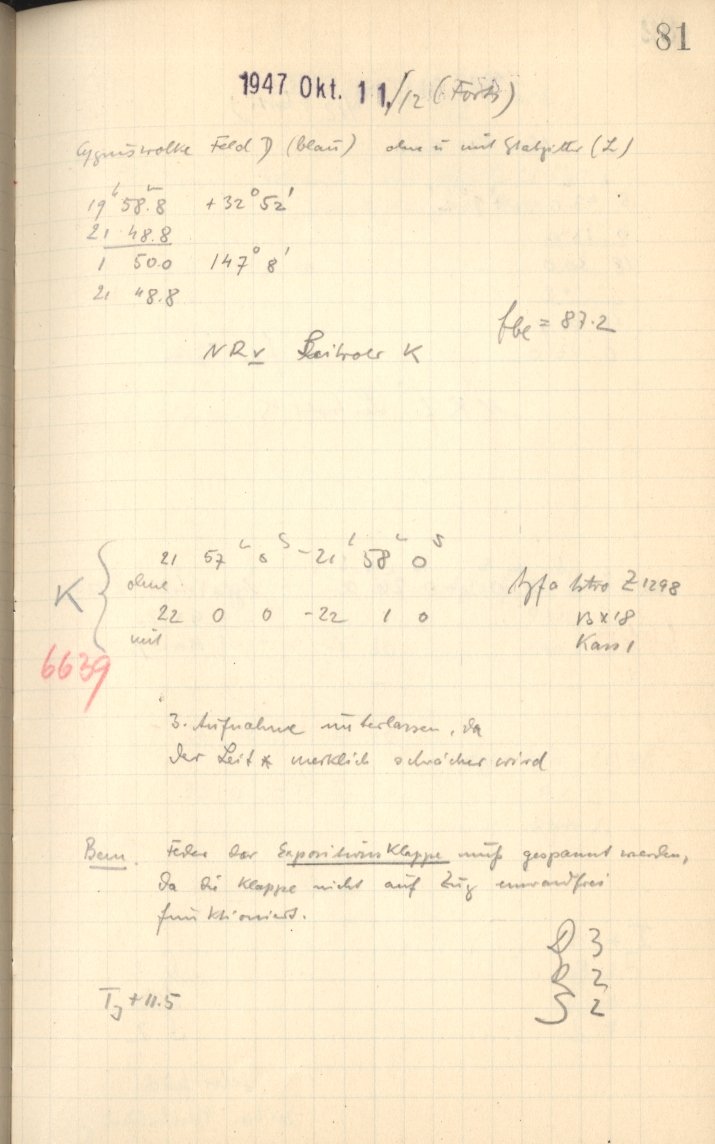 81
1947 Okt. 11./12 (Forts)
Cygnuswolke Feld D (blau) ohne u mit Stabgitter (L)
19ʰ 58.8ᵐ +32° 52'
21 48.8
1 50.0 147° 8'
21 48.8
fbl = 87.2
NR v K
21 57ᵐ 0ˢ - 21ʰ 58ᵐ 0ˢ
ohne
K
Agfa Astro Z 1298
22 0 0 - 22 1 0
13 x 18
mit
Kass 1
6639
3. Aufnahme unterlassen, da
der Leit * merklich schwächer wird
Bem. Feder der Expositionsklappe muß gespannt werden,
da die Klappe nicht auf Zug einwandfrei
funktioniert.
D 3
R 2
T + 11.5
S 2